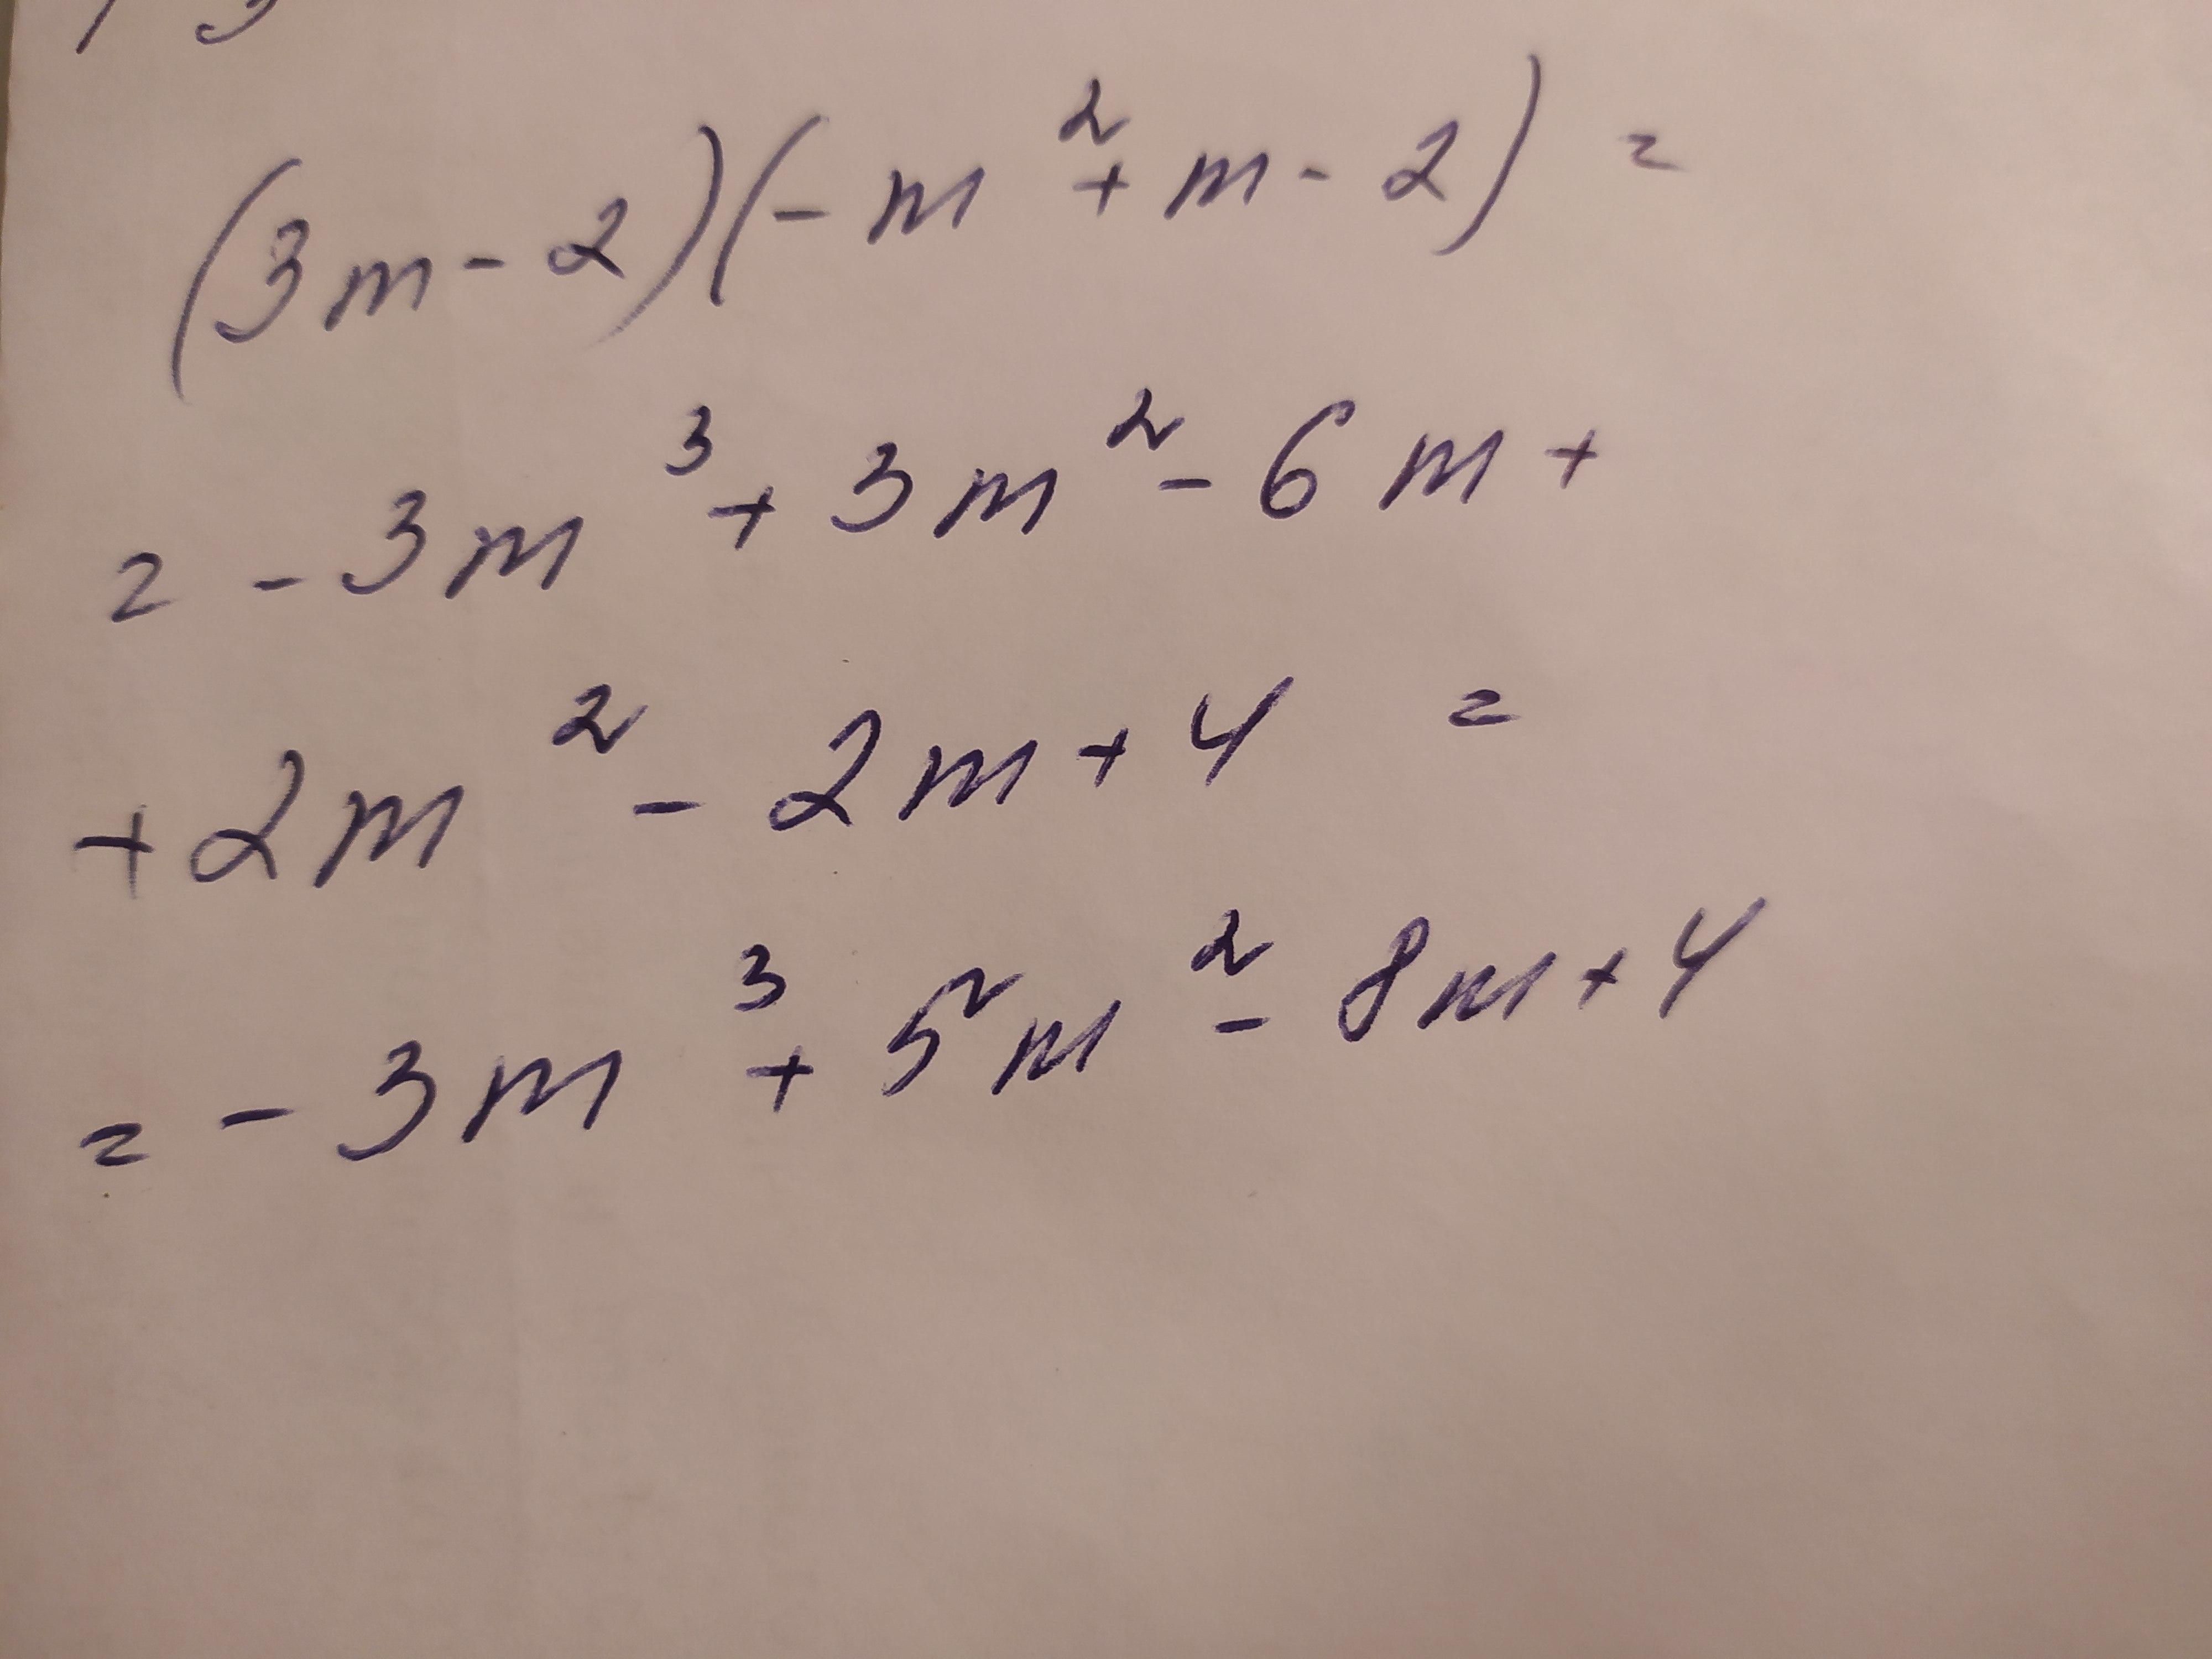 (3m-2)(-m²+m-2) =
= -3m³+3m²-6m+
+2m²-2m+4 =
= -3m³+5m²-8m+4